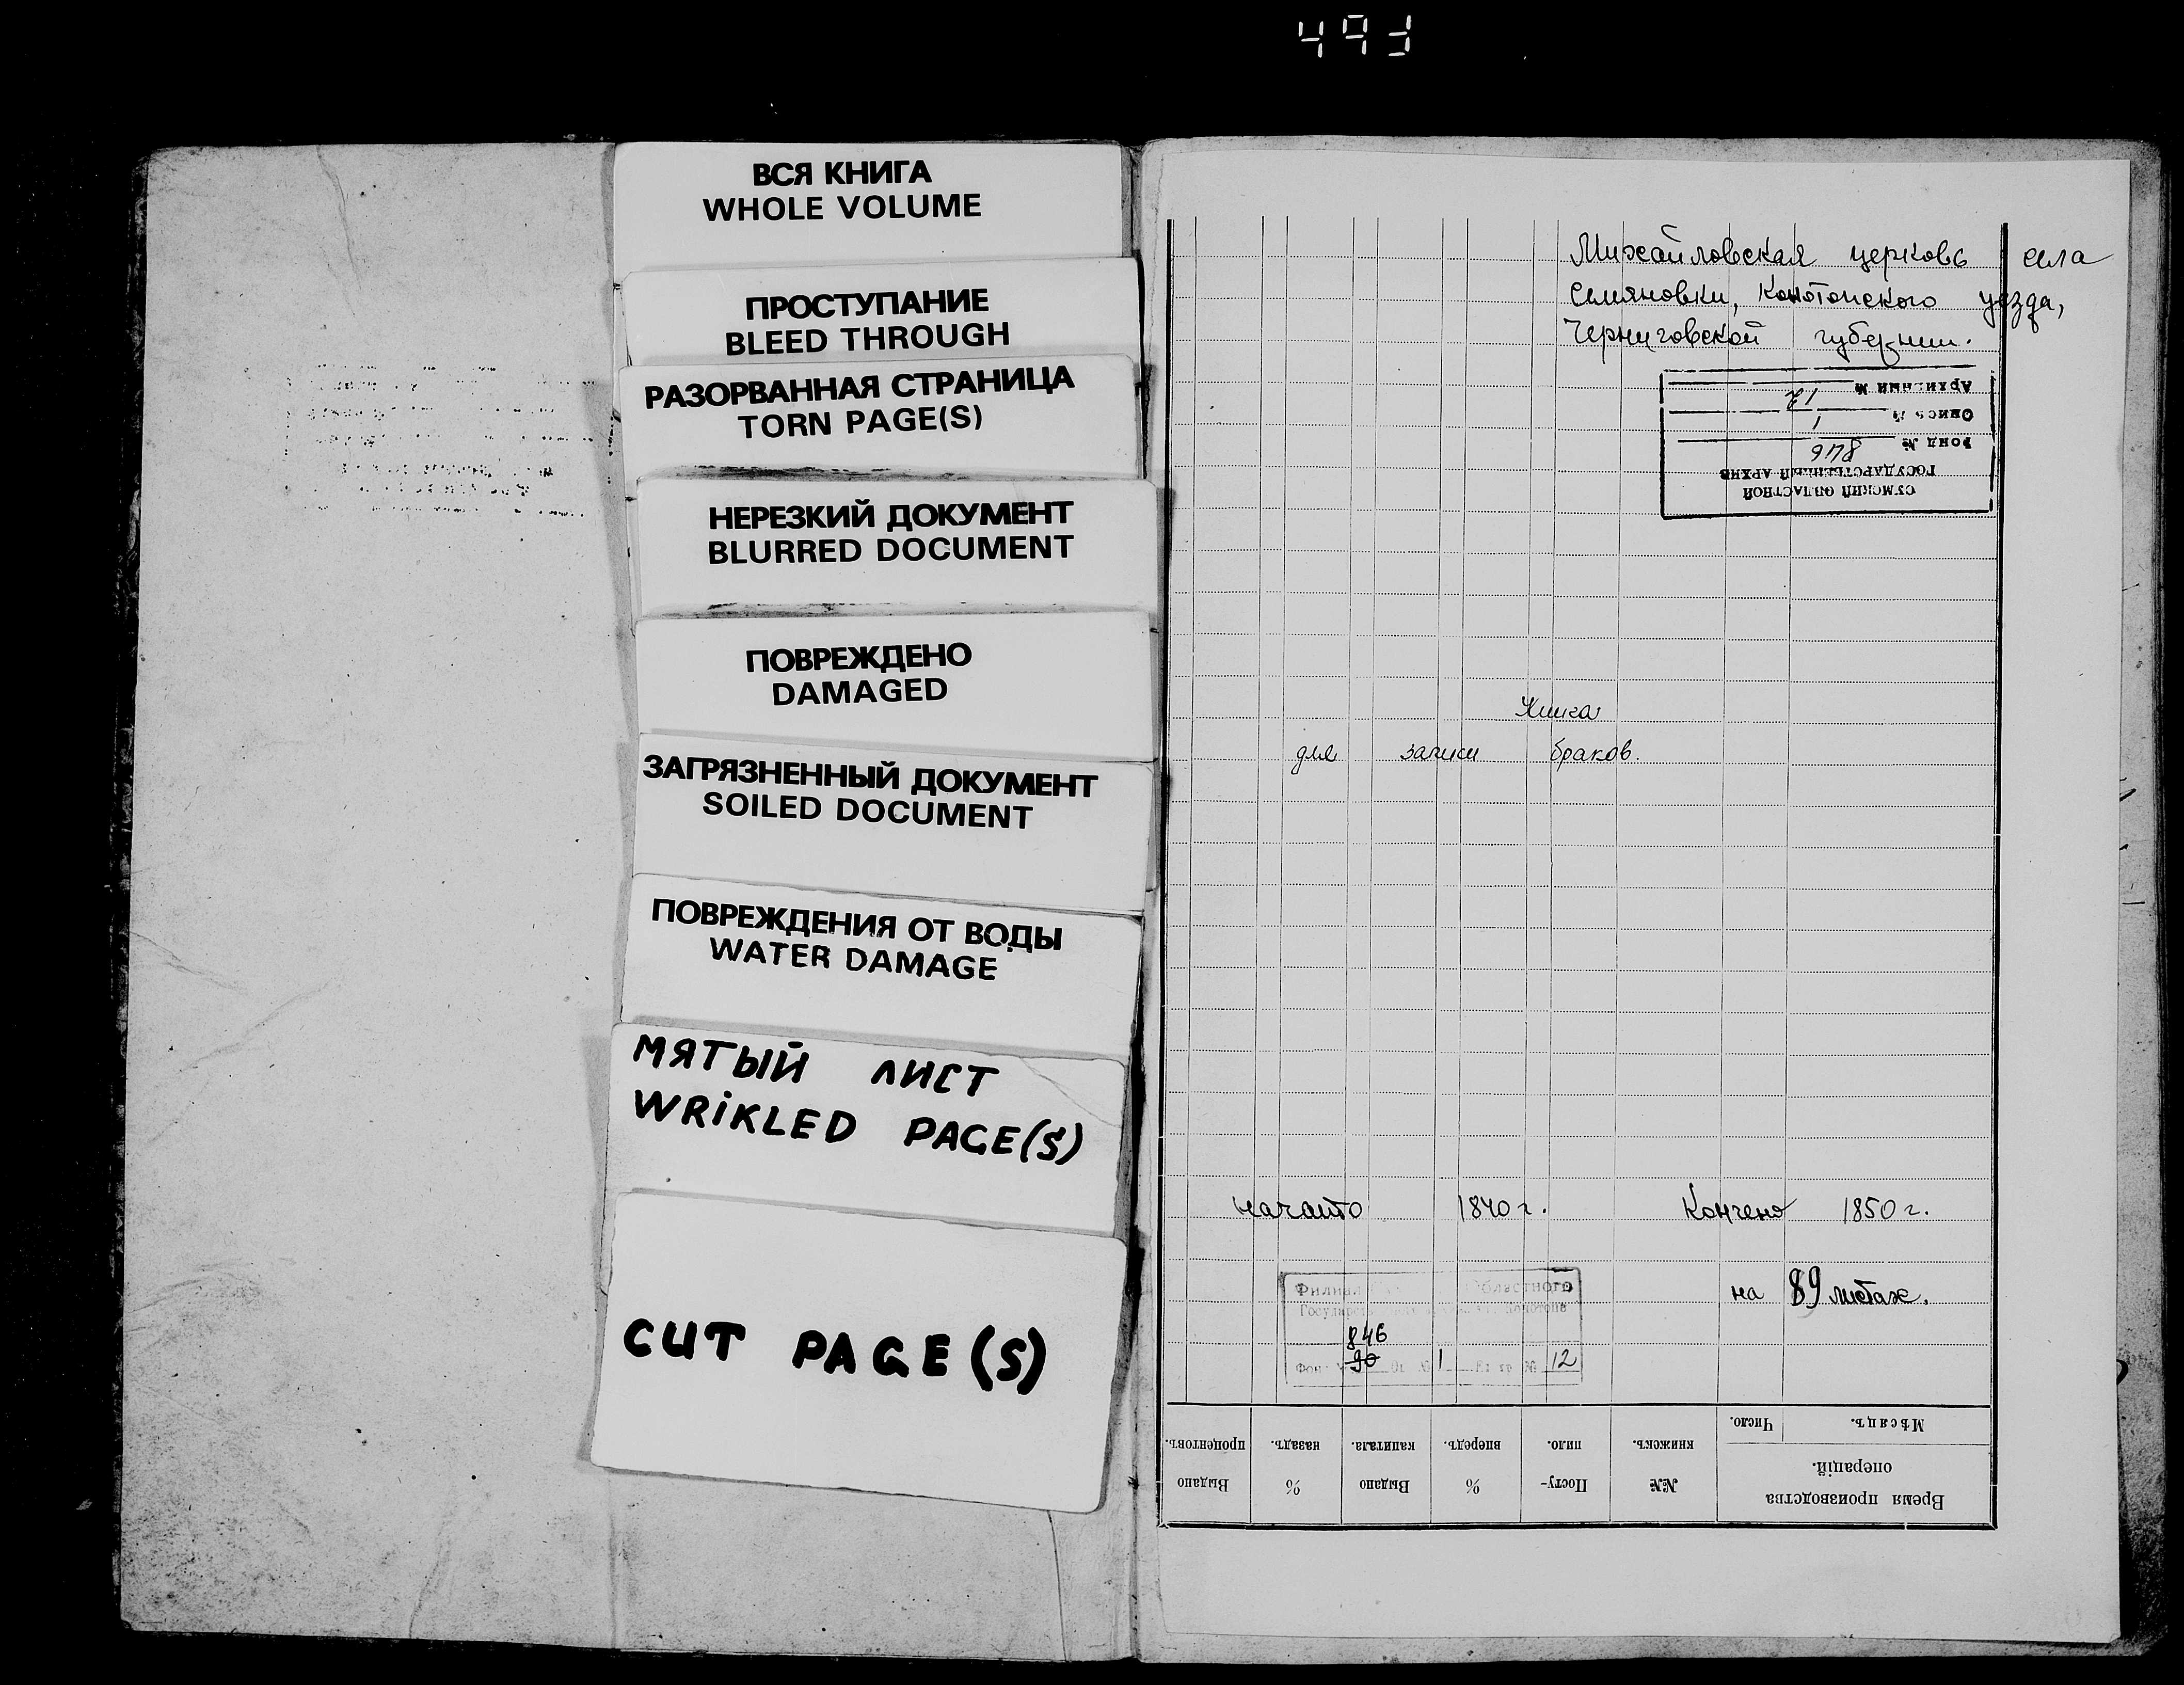 ВСЯ КНИГА
WHOLE VOLUME
ПРОСТУПАНИЕ
BLEED THROUGH
РАЗОРВАННАЯ СТРАНИЦА
TORN PAGE(S)
НЕРЕЗКИЙ ДОКУМЕНТ
BLURRED DOCUMENT
ПОВРЕЖДЕНО
DAMAGED
ЗАГРЯЗНЕННЫЙ ДОКУМЕНТ
SOILED DOCUMENT
ПОВРЕЖДЕНИЯ ОТ ВОДЫ
WATER DAMAGE
МЯТЫЙ ЛИСТ
WRiKLED PAGE(S)
CUT PAGE(S)
Михайловская церковь села
Семяновки, Конотопского уезда,
Черниговской губернии.
СУМСКИЙ ОБЛАСТНОЙ
ГОСУДАРСТВЕННЫЙ АРХИВ
Фонд № 846
Опись № 1
Архивный № 12
Книга
для записи браков.
начато 1840 г. Кончено 1850 г.
на 89 листах.
Филиал Областного
846
90 1 12
Время производства
операцій.
Мѣсяцъ. Число.
№№ книжекъ.
Посту-
пило.
% впередъ.
Выдано капитала.
% назадъ.
Выдано процентовъ.